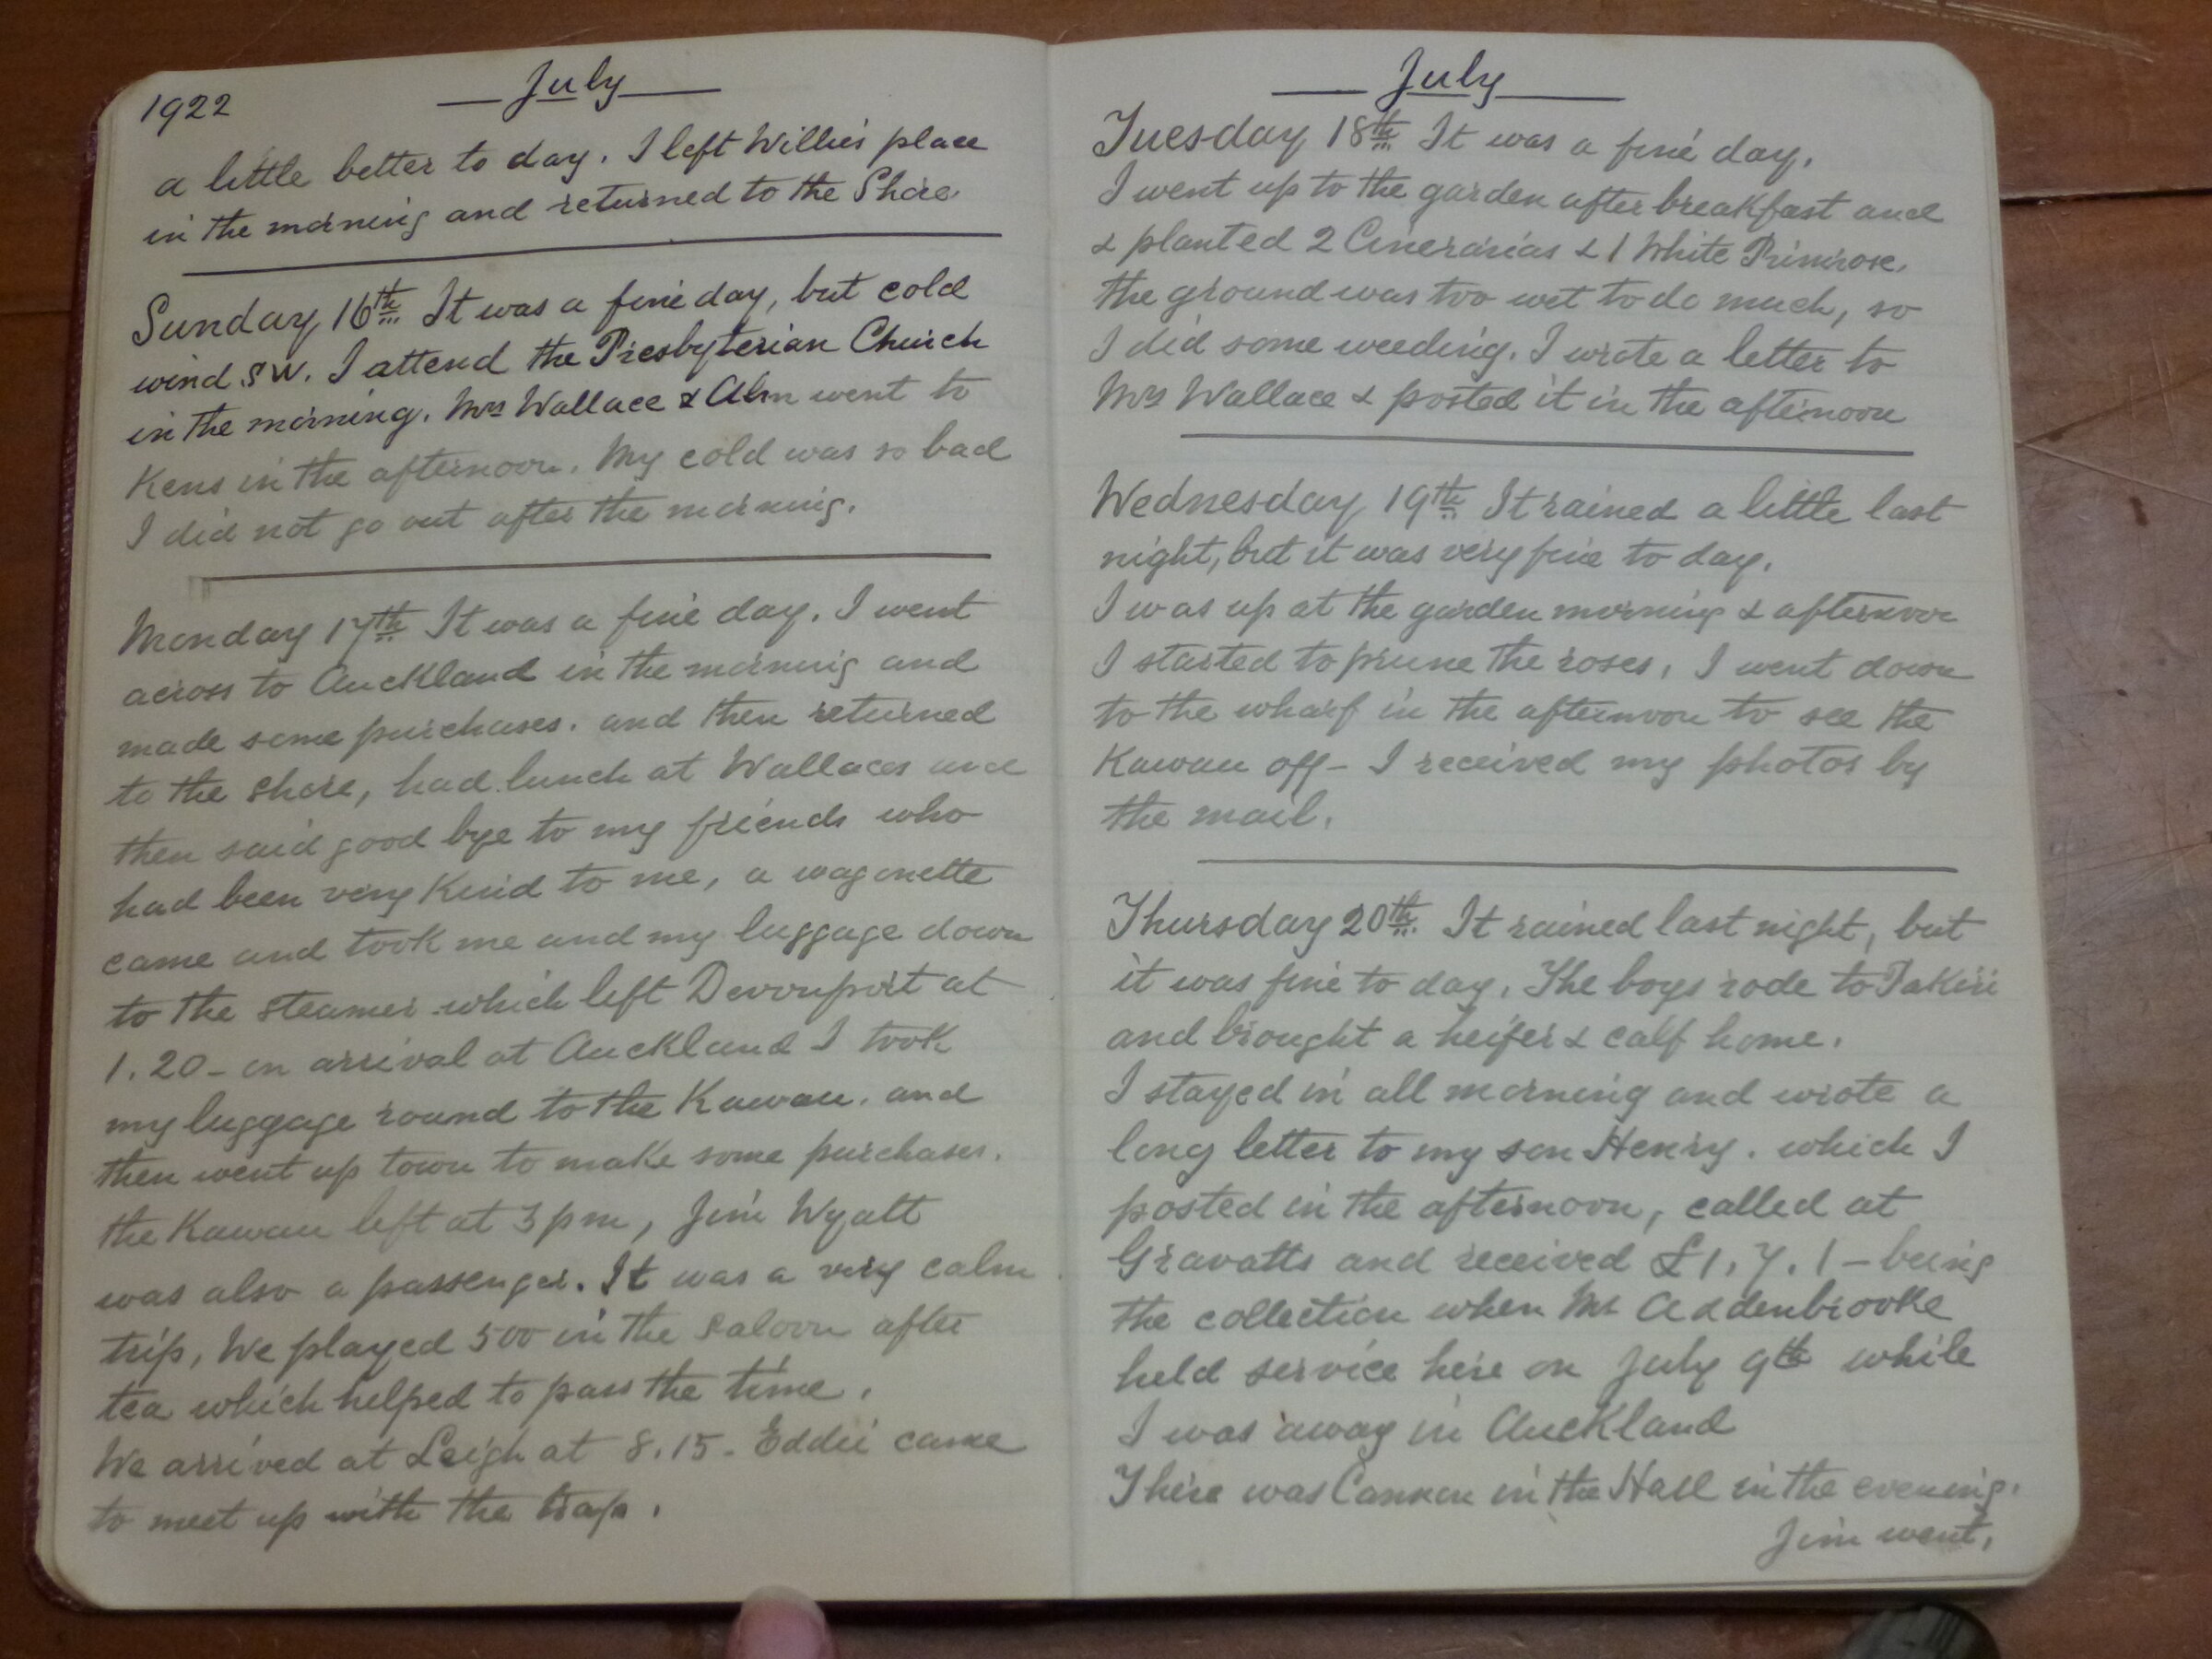 1922
July
a little better to day. I left Willie's place
in the morning and returned to the Shore.
Sunday 16th It was a fine day, but cold
wind SW. I attend the Presbyterian Church
in the morning. Mrs Wallace & Alm went to
Kens in the afternoon. My cold was so bad
I did not go out after the morning.
Monday 17th It was a fine day. I went
across to Auckland in the morning and
made some purchases. and then returned
to the shore, had lunch at Wallaces and
then said good bye to my friends who
had been very kind to me, a wagonette
came and took me and my luggage down
to the steamer which left Devonport at
1.20 - on arrival at Auckland I took
my luggage round to the Kawau. and
then went up town to make some purchases.
the Kawau left at 3 pm, Jim Wyatt
was also a passenger. It was a very calm
trip, We played 500 in the saloon after
tea which helped to pass the time.
We arrived at Leigh at 8.15 - Eddie came
to meet up with the trap.
July
Tuesday 18th It was a fine day.
I went up to the garden after breakfast and
& planted 2 Cinerarias & 1 White Primrose.
the ground was too wet to do much, so
I did some weeding. I wrote a letter to
Mrs Wallace & posted it in the afternoon
Wednesday 19th It rained a little last
night, but it was very fine to day.
I was up at the garden morning & afternoon
I started to prune the roses. I went down
to the wharf in the afternoon to see the
Kawau off - I received my photos by
the mail.
Thursday 20th It rained last night, but
it was fine to day. The boys rode to Pakiri
and brought a heifer & calf home.
I stayed in all morning and wrote a
long letter to my son Henry. which I
posted in the afternoon, called at
Gravatts and received £1.7.1 - being
the collection when Mr Addenbrooke
held service here on July 9th while
I was away in Auckland
There was in the Hall in the evening.
Jim went.